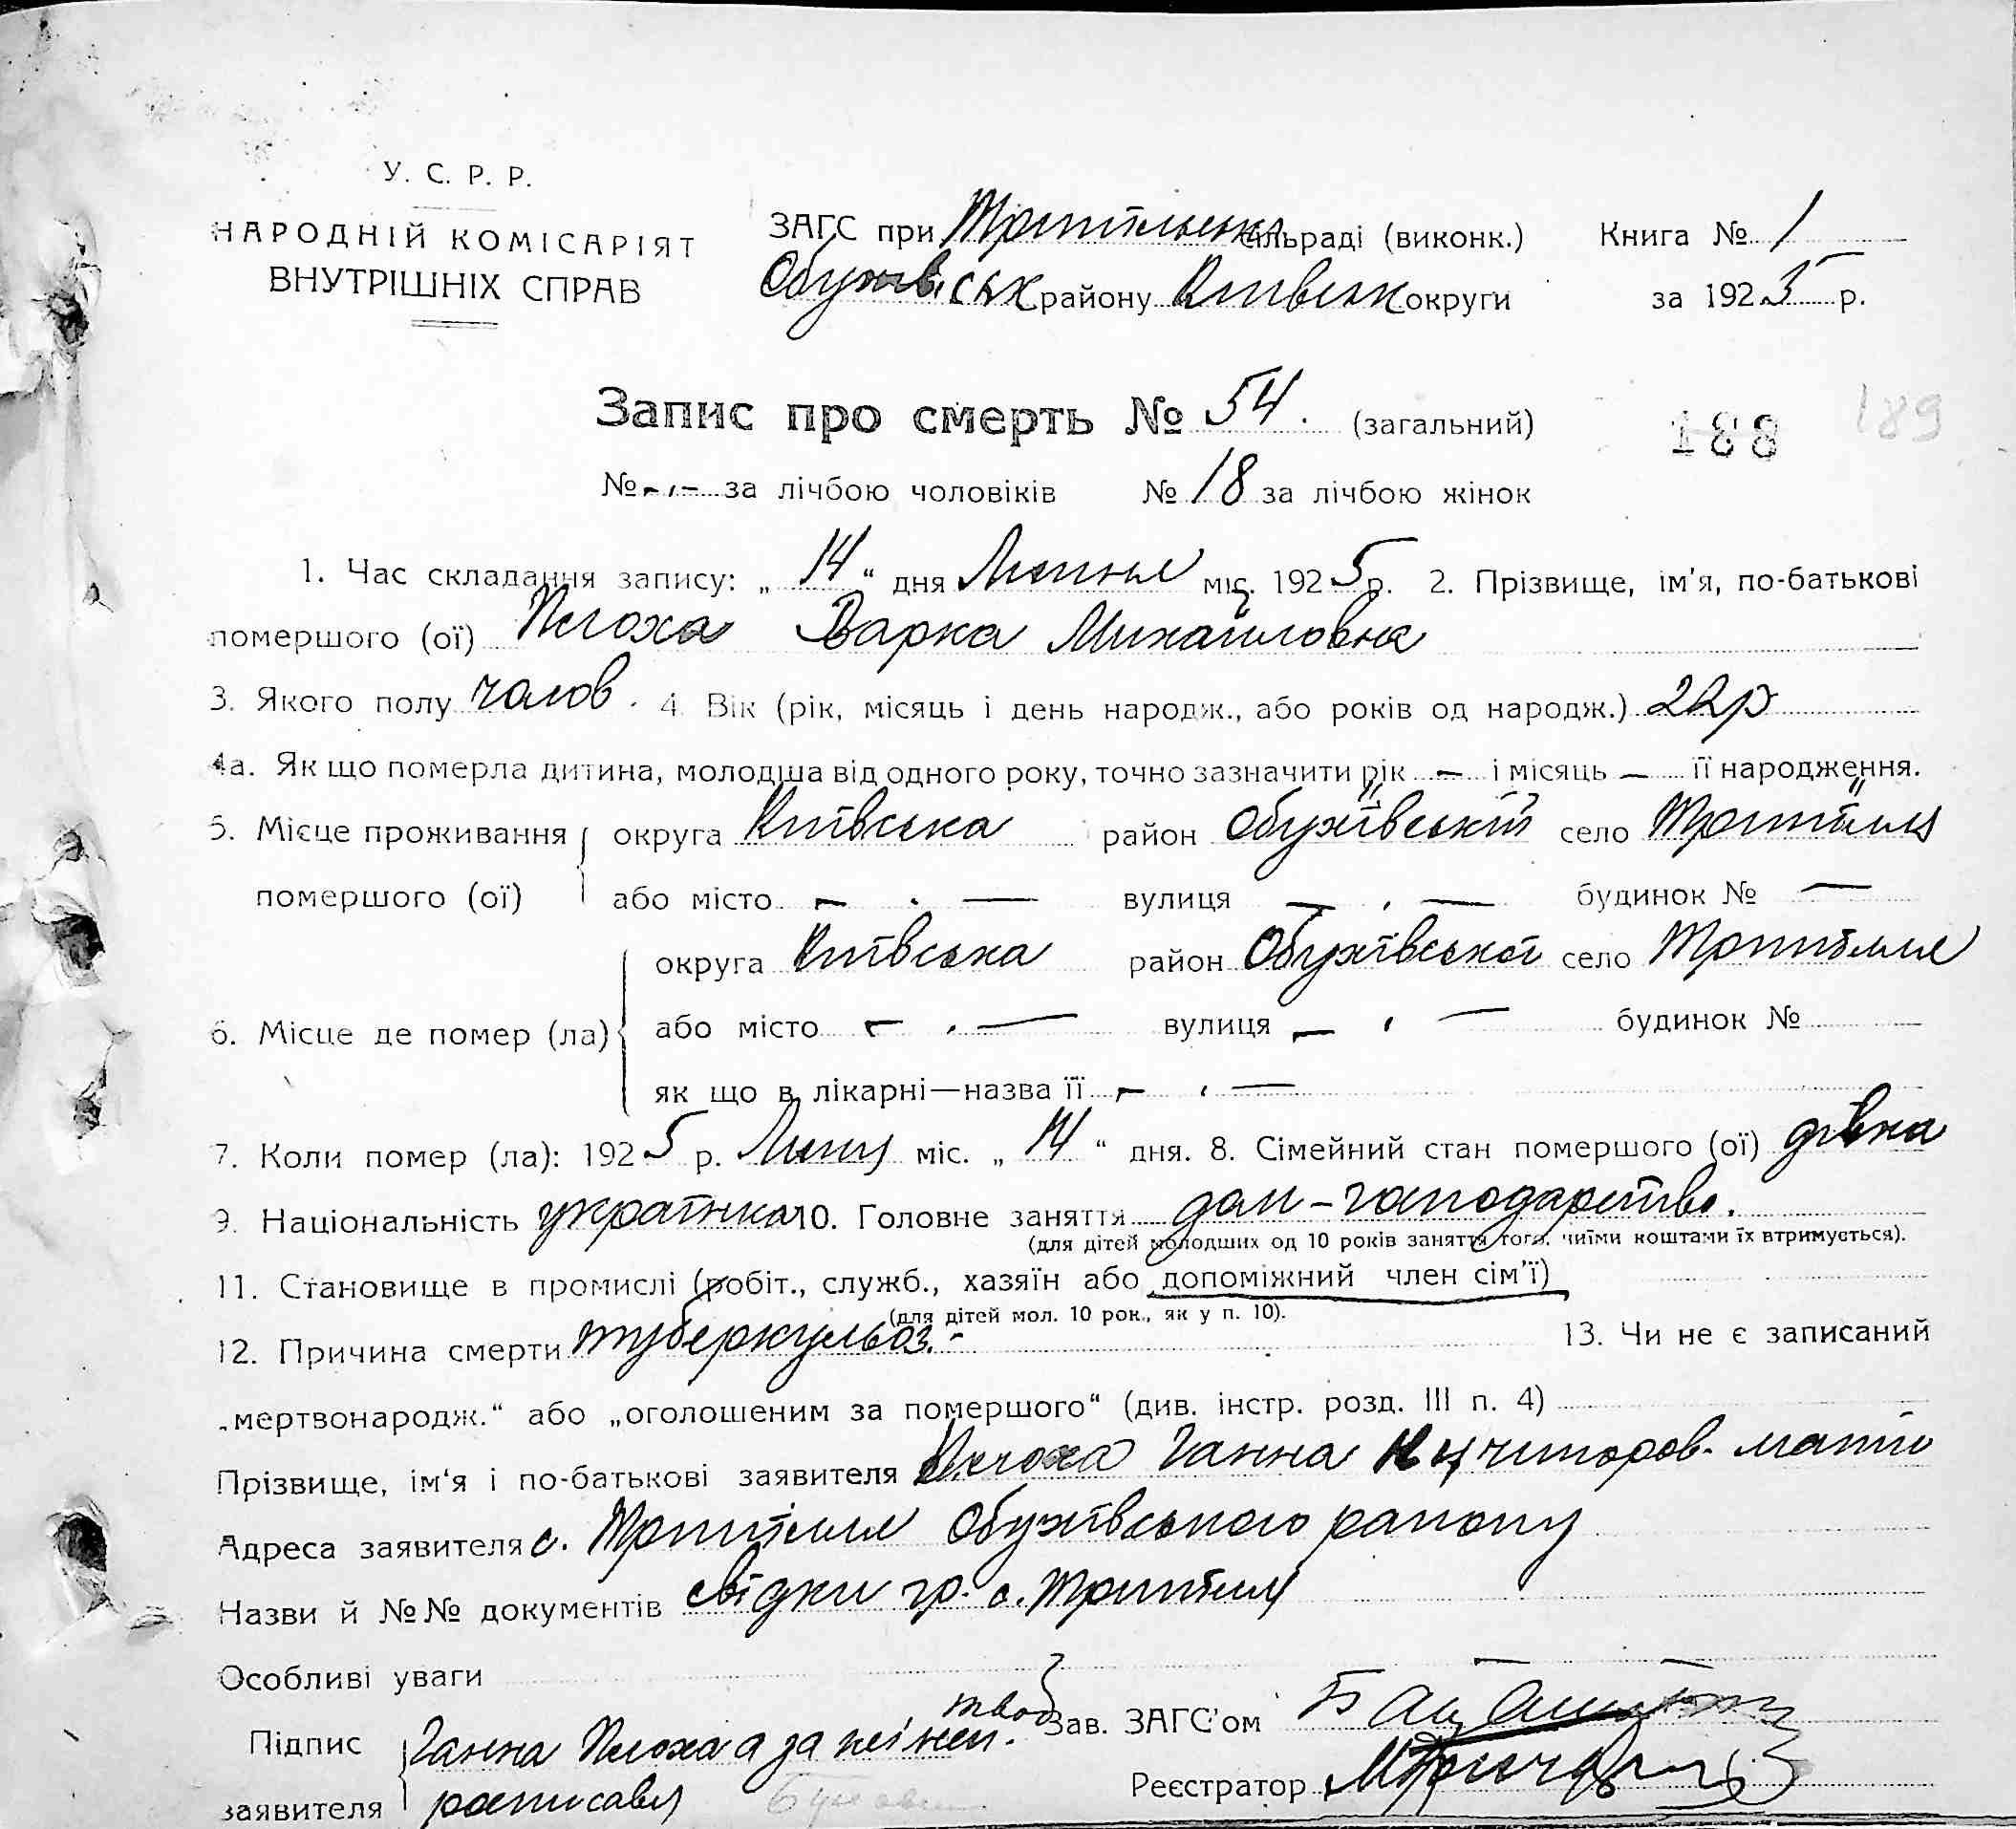 У. С. Р. Р.
НАРОДНІЙ КОМІСАРІЯТ
ВНУТРІШНІХ СПРАВ
ЗАГС при Трипільськ сільраді (виконк.) Книга № 1
Обухівськ району Київськ округи за 1925 р.
Запис про смерть № 54. (загальний) 188 189
№ - за лічбою чоловіків № 18 за лічбою жінок
1. Час складання запису: „14“ дня Липня міс. 1925 р. 2. Прізвище, ім'я, по-батькові
помершого (ої) Плоха Варка Михайловна
3. Якого полу чолов. 4. Вік (рік, місяць і день народж., або років од народж.) 22р
4а. Як що померла дитина, молодша від одного року, точно зазначити рік — і місяць — її народження.
5. Місце проживання округа Київська район Обухівський село Трипілля
помершого (ої) або місто — . — вулиця — . — будинок № —
округа Київська район Обухівський село Трипілля
6. Місце де помер (ла) або місто — . — вулиця — . — будинок №
як що в лікарні—назва її — . —
7. Коли помер (ла): 1925 р. Липня міс. „14“ дня. 8. Сімейний стан помершого (ої) дівка
9. Національність українка 10. Головне заняття дом-господарство.
(для дітей молодших од 10 років заняття того, чиїми коштами їх втримується).
11. Становище в промислі (робіт., служб., хазяїн або допоміжний член сім'ї)
(для дітей мол. 10 рок., як у п. 10).
12. Причина смерти туберкульоз. - 13. Чи не є записаний
„мертвонародж.“ або „оголошеним за помершого“ (див. інстр. розд. III п. 4)
Прізвище, ім'я і по-батькові заявителя Плоха Ганна Ничипоров. мати
Адреса заявителя с. Трипілля Обухівського району
Назви й №№ документів свідки гр. с. Трипілля
Особливі уваги
Підпис Ганна Плоха а за неї неп. Зав. ЗАГС'ом
заявителя росписавсь Реєстратор